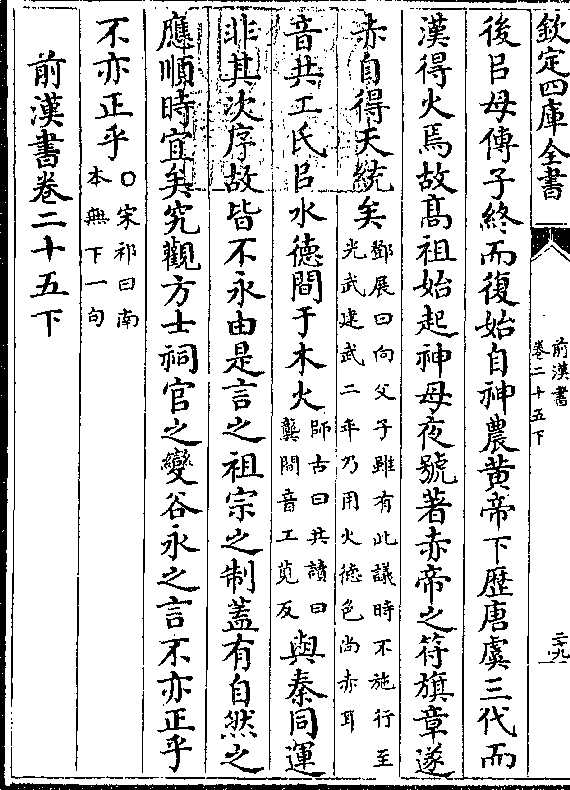 欽定四庫全書
前漢書
卷二十五下
二十九
後以母傳子終而復始自神農黄帝下歴唐虞三代而
漢得火焉故髙祖始起神母夜號著赤帝之符旗章遂
赤自得天統矣鄧展曰向父子雖有此議時不施行至
光武建武二年乃用火徳色尚赤耳
昔共工氏以水德間于木火師古曰共讀曰
龔間音工莧反與秦同運
非其次序故皆不永由是言之祖宗之制蓋有自然之
應順時宜矣究觀方士祠官之變谷永之言不亦正乎
不亦正乎○宋祁曰南
本無下一句
前漢書卷二十五下